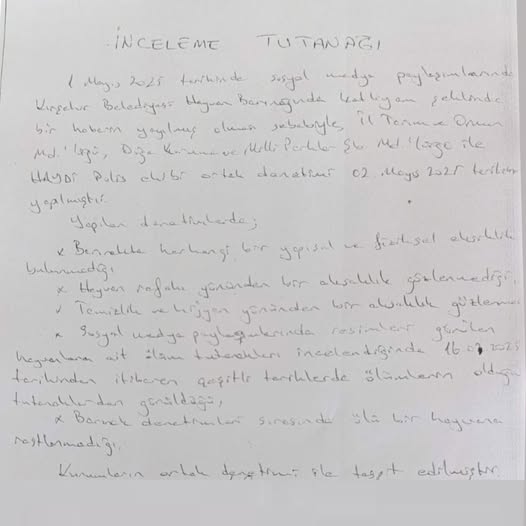 İNCELEME TUTANAĞI
1 Mayıs 2025 tarihinde sosyal medya paylaşımlarında
Kırşehir Belediyesi Hayvan Barınağında katliyam şeklinde
bir haberin yayılmış olması sebebiyle, İl Tarım ve Orman
Md.'lüğü, Doğa Koruma ve Milli Parklar Şb Md.'lüğü ile
HAYDİ Polis ekibi ortak denetimi 02 Mayıs 2025 tarihinde
yapılmıştır.
Yapılan denetimlerde;
x Barınakta herhangi bir yapısal ve fiziksel eksiklik
bulunmadığı
x Hayvan refahı yönünden bir aksaklık gözlenmediği,
x Temizlik ve hijyen yönünden bir aksaklık
x Sosyal medya paylaşımlarında resimleri görülen
hayvanlara ait ölüm tutanakları incelendiğinde 16.03.2025
tarihinden itibaren çeşitli tarihlerde ölümlerin olduğu
tutanaklardan görüldüğü,
x Barınak denetimleri sırasında ölü bir hayvana
rastlanmadığı.
Kurumların ortak denetimi ile tespit edilmiştir.